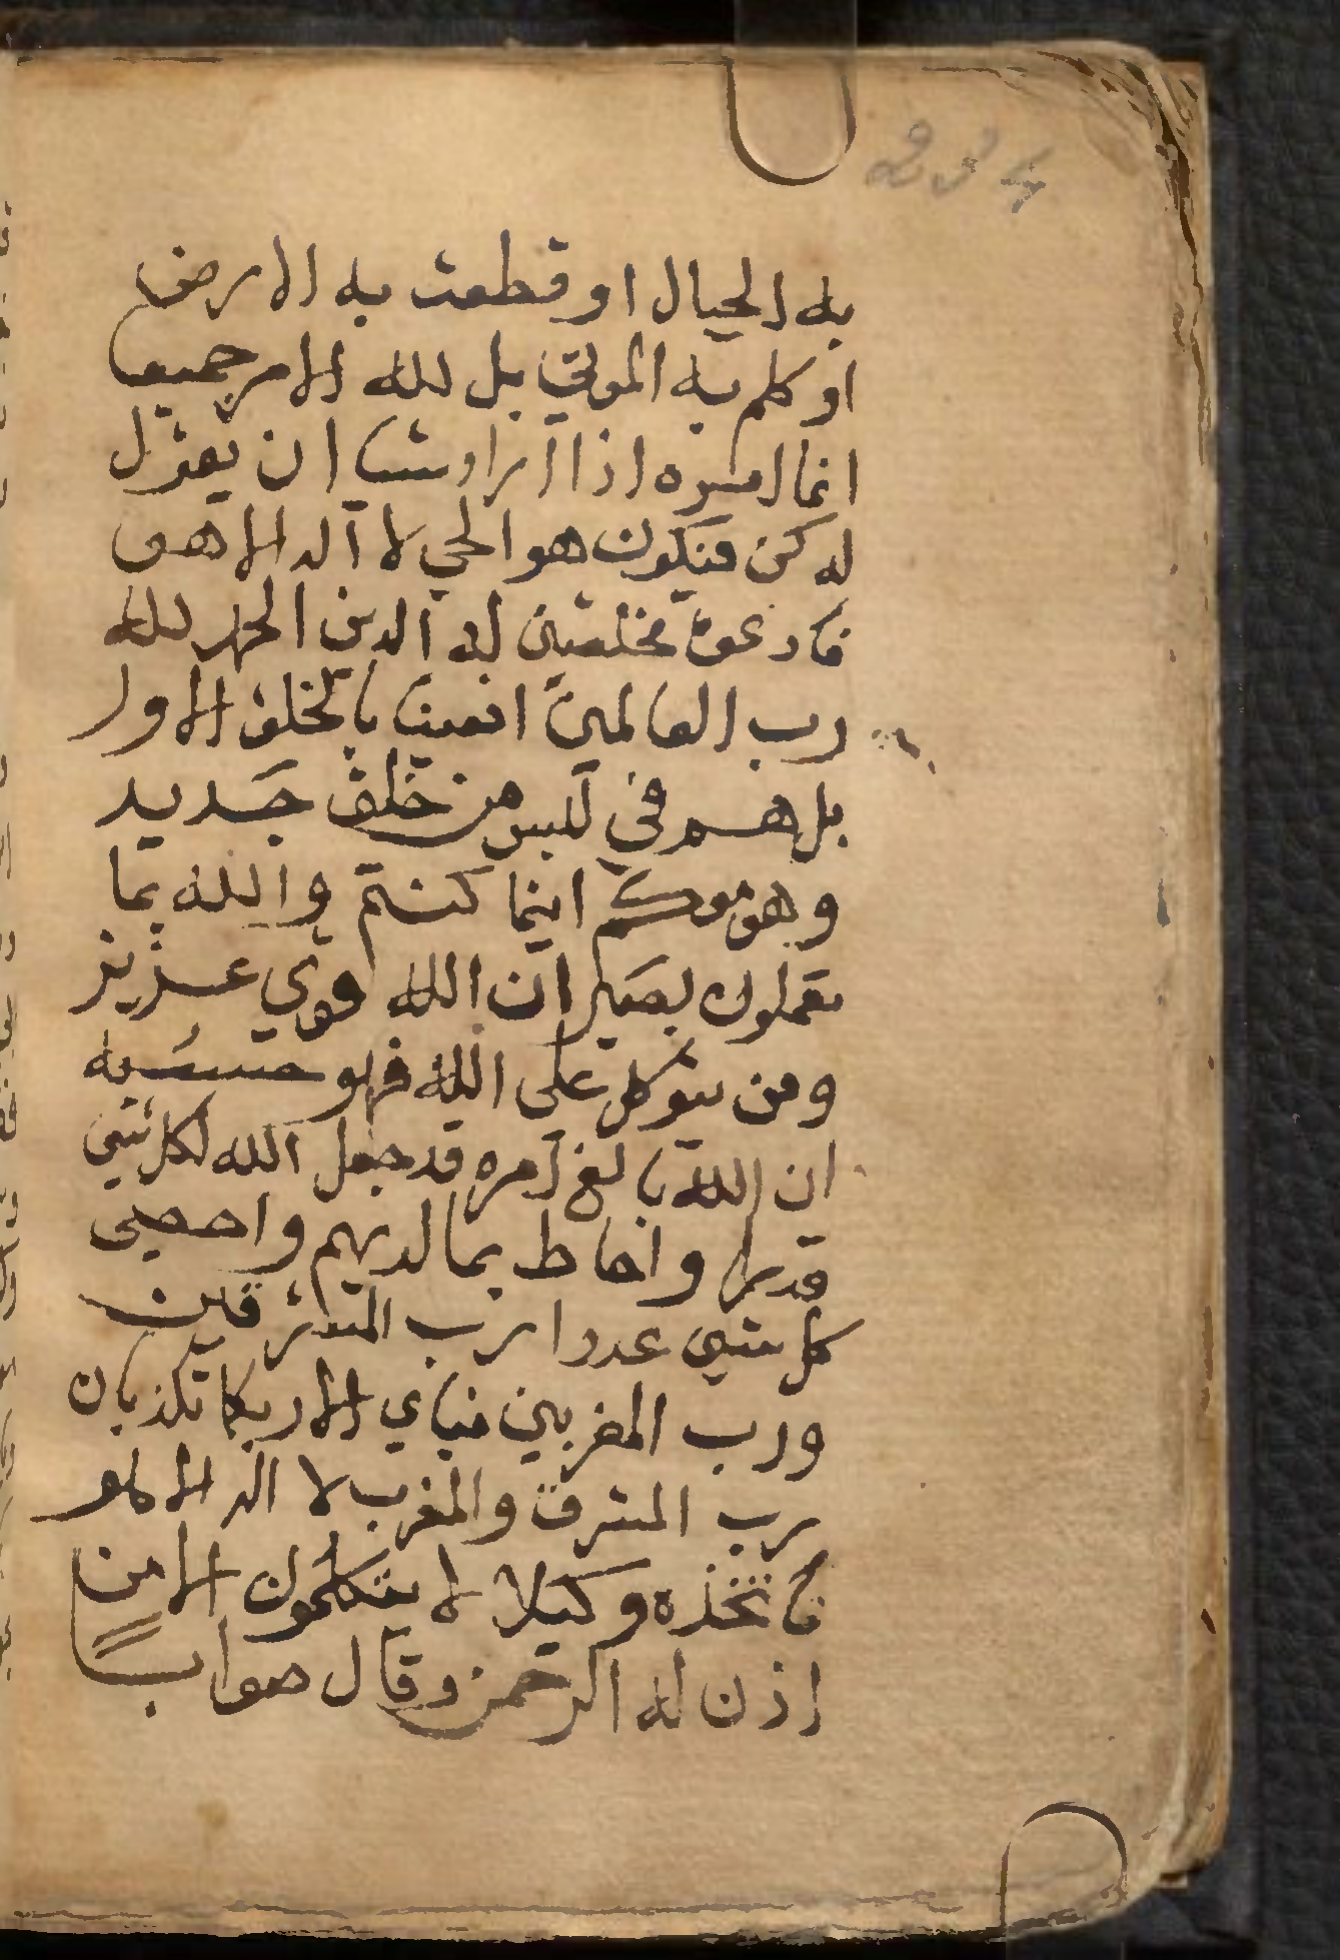 234
به الجبال او قطعت به الارض
او كلم به الموتي بل لله الامر جميعا
انما امره اذا اراد شيا ان يقول
له كن فيكون هو الحي لا اله الا هو
فادعوه مخلصين له الدين الحمد لله
رب العالمين افعينا بالخلق الاول
بل هم في لبس من خلق جديد
وهو معكم اينما كنتم والله بما
تعملون بصير ان الله قوي عزيز
ومن يتوكل على الله فهو حسبه
ان الله بالغ امره قد جعل الله لكل شي
قدرا واحاط بما لديهم واحصى
كل شي عددا رب المشرقين
ورب المغربين فباي الاء ربكما تكذبان
رب المشرق والمغرب لا اله الا هو
فاتخذه وكيلا لا يتكلمون الا من
اذن له الرحمن وقال صوابا